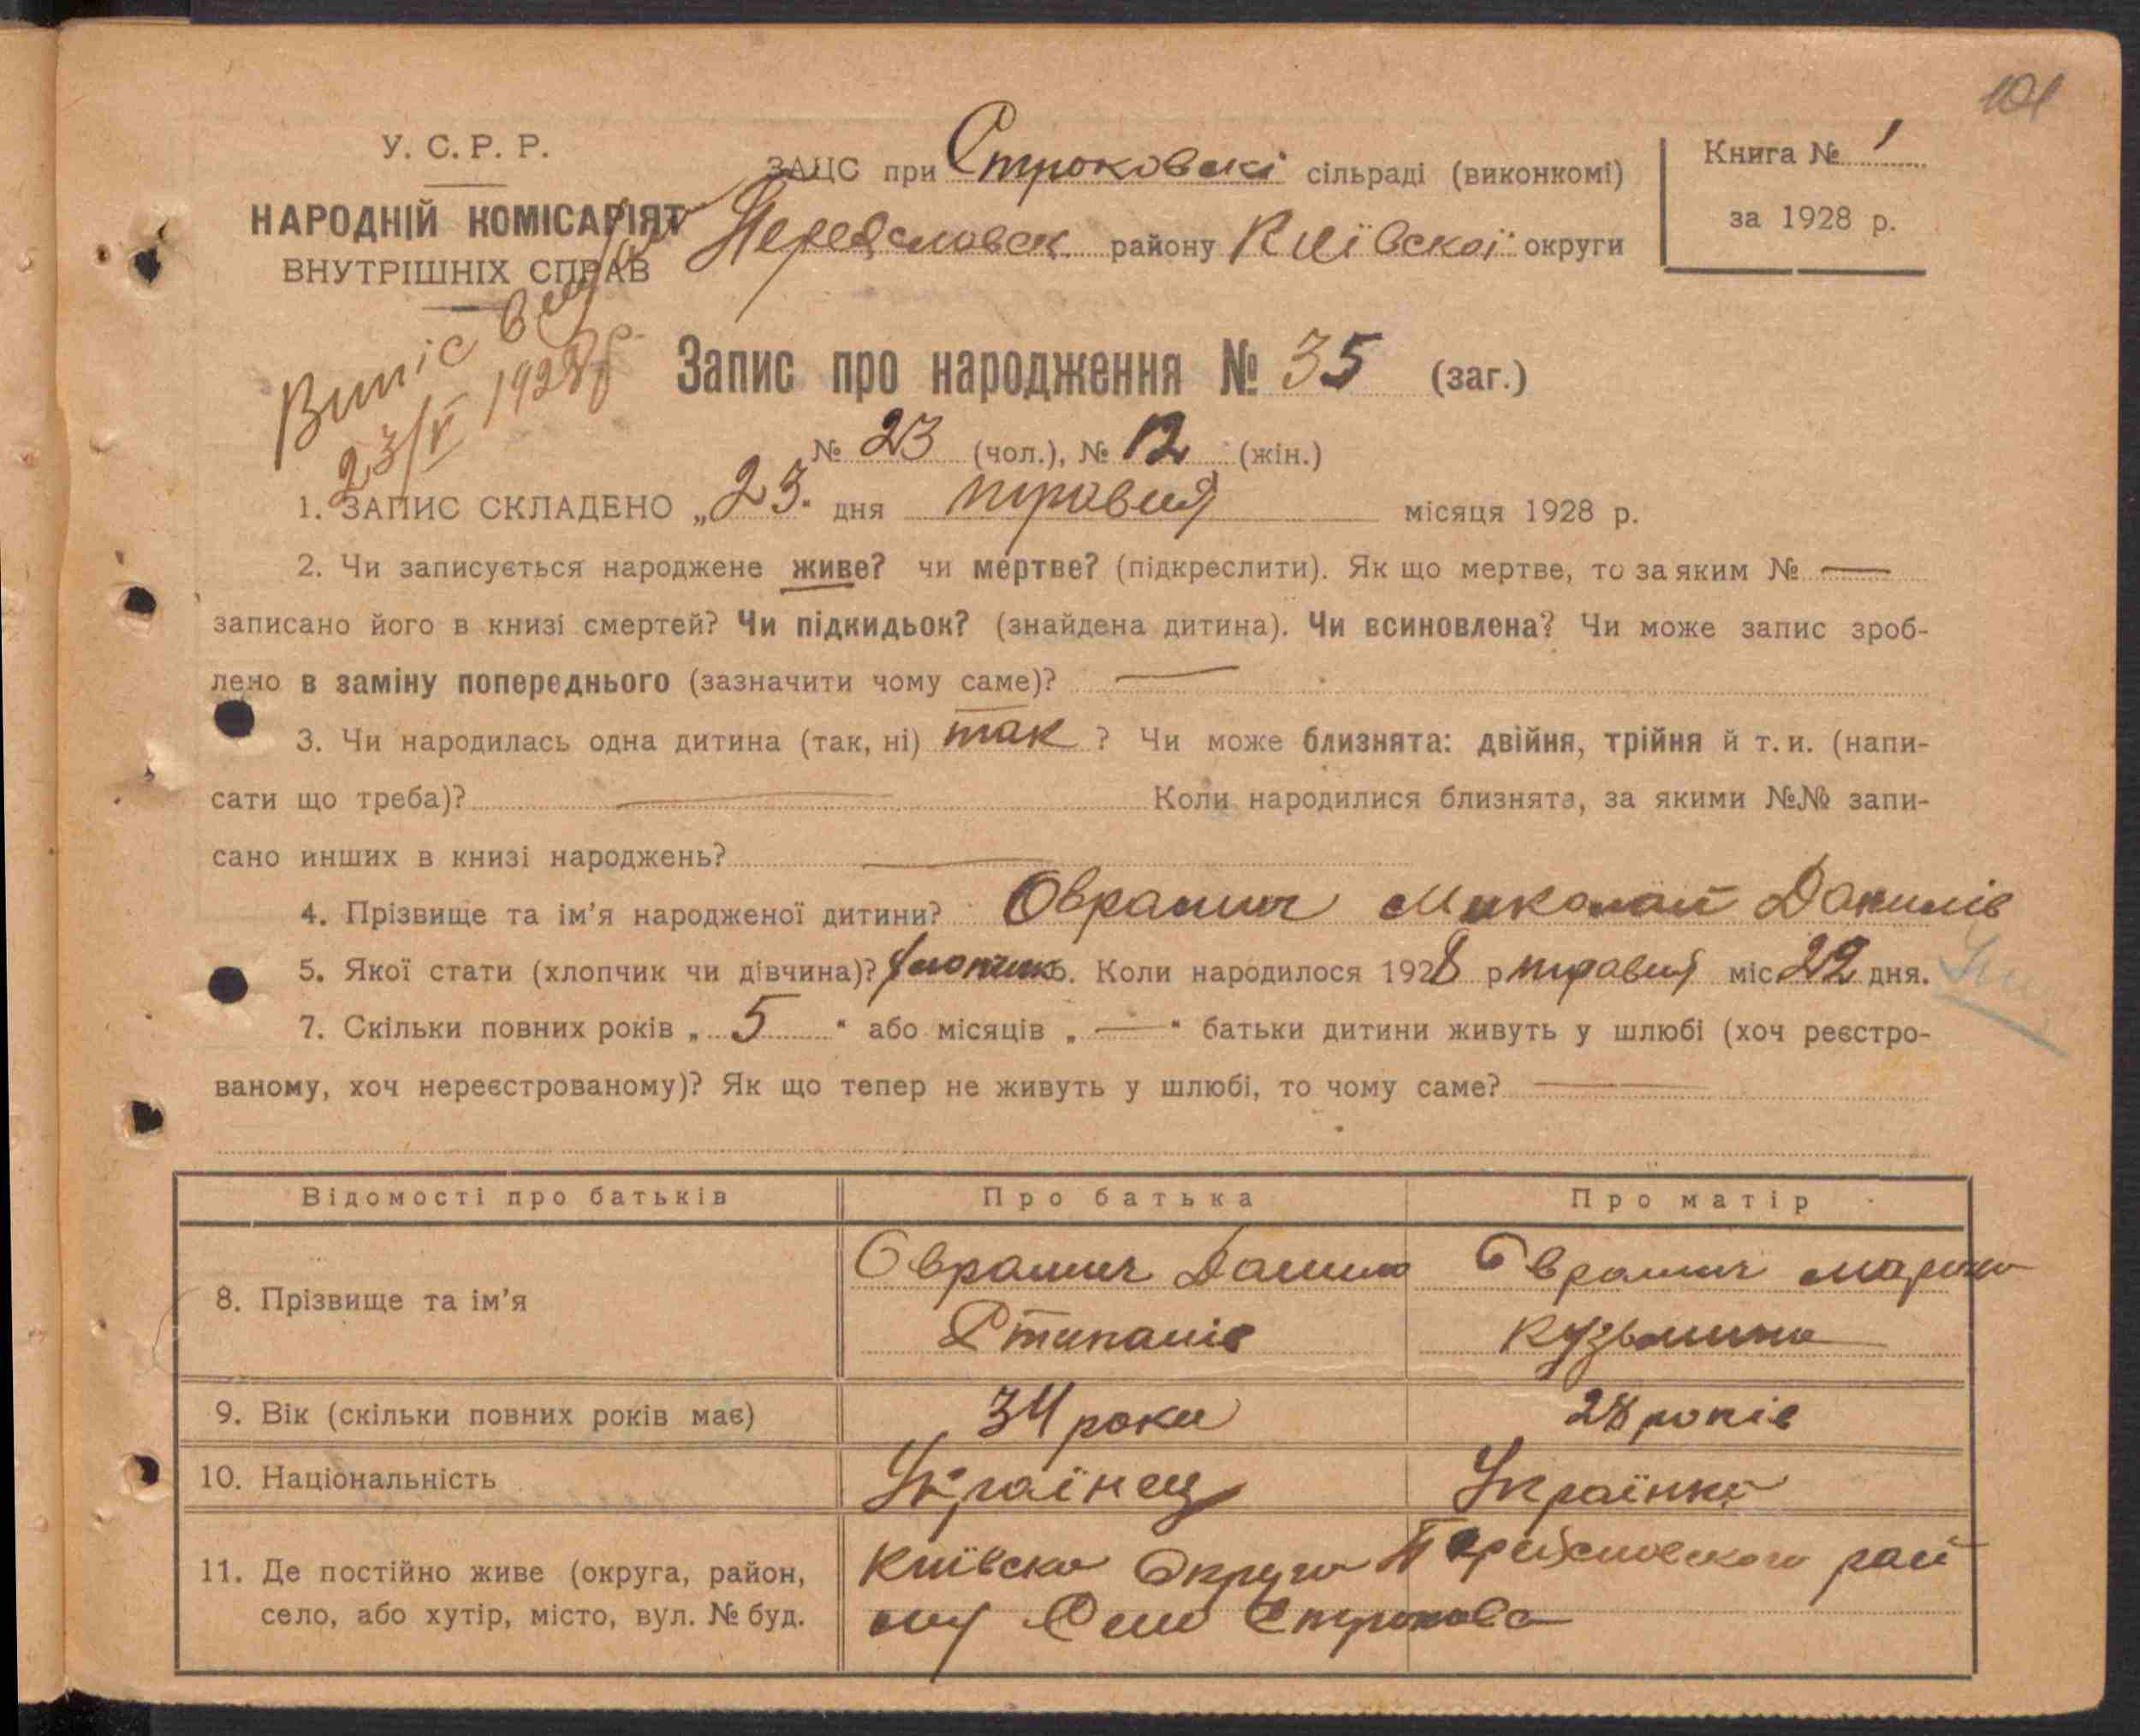 101
У. С. Р. Р.
НАРОДНІЙ КОМІСАРІЯТ
ВНУТРІШНІХ СПРАВ
ЗАЦС при Строковскі сільраді (виконкомі)
району Київскої округи
Книга № 1
за 1928 р.
Випіс
23/V 1928 р.
Запис про народження № 35 (заг.)
№ 23 (чол.), № 12 (жін.)
1. ЗАПИС СКЛАДЕНО „23" дня травня місяця 1928 р.
2. Чи записується народжене живе? чи мертве? (підкреслити). Як що мертве, то за яким № —
записано його в книзі смертей? Чи підкидьок? (знайдена дитина). Чи всиновлена? Чи може запис зроб-
лено в заміну попереднього (зазначити чому саме)? —
3. Чи народилась одна дитина (так, ні) так ? Чи може близнята: двійня, трійня й т. и. (напи-
сати що треба)? — Коли народилися близнята, за якими №№ запи-
сано инших в книзі народжень? —
4. Прізвище та ім'я народженої дитини? Оврамич Миколай Данилів
5. Якої стати (хлопчик чи дівчина)? хлопчик. Коли народилося 1928 р травня міс 22 дня.
7. Скільки повних років „ 5 " або місяців „ — " батьки дитини живуть у шлюбі (хоч реєстро-
ваному, хоч нереєстрованому)? Як що тепер не живуть у шлюбі, то чому саме? —
Відомості про батьків Про батька Про матір
8. Прізвище та ім'я Оврамич Данило Оврамич
Стипанів Кузьмина
9. Вік (скільки повних років має) 34 роки 28 років
10. Національність Українец Українка
11. Де постійно живе (округа, район, Київска Округа рай
село, або хутір, місто, вул. № буд. ону Село Строкова